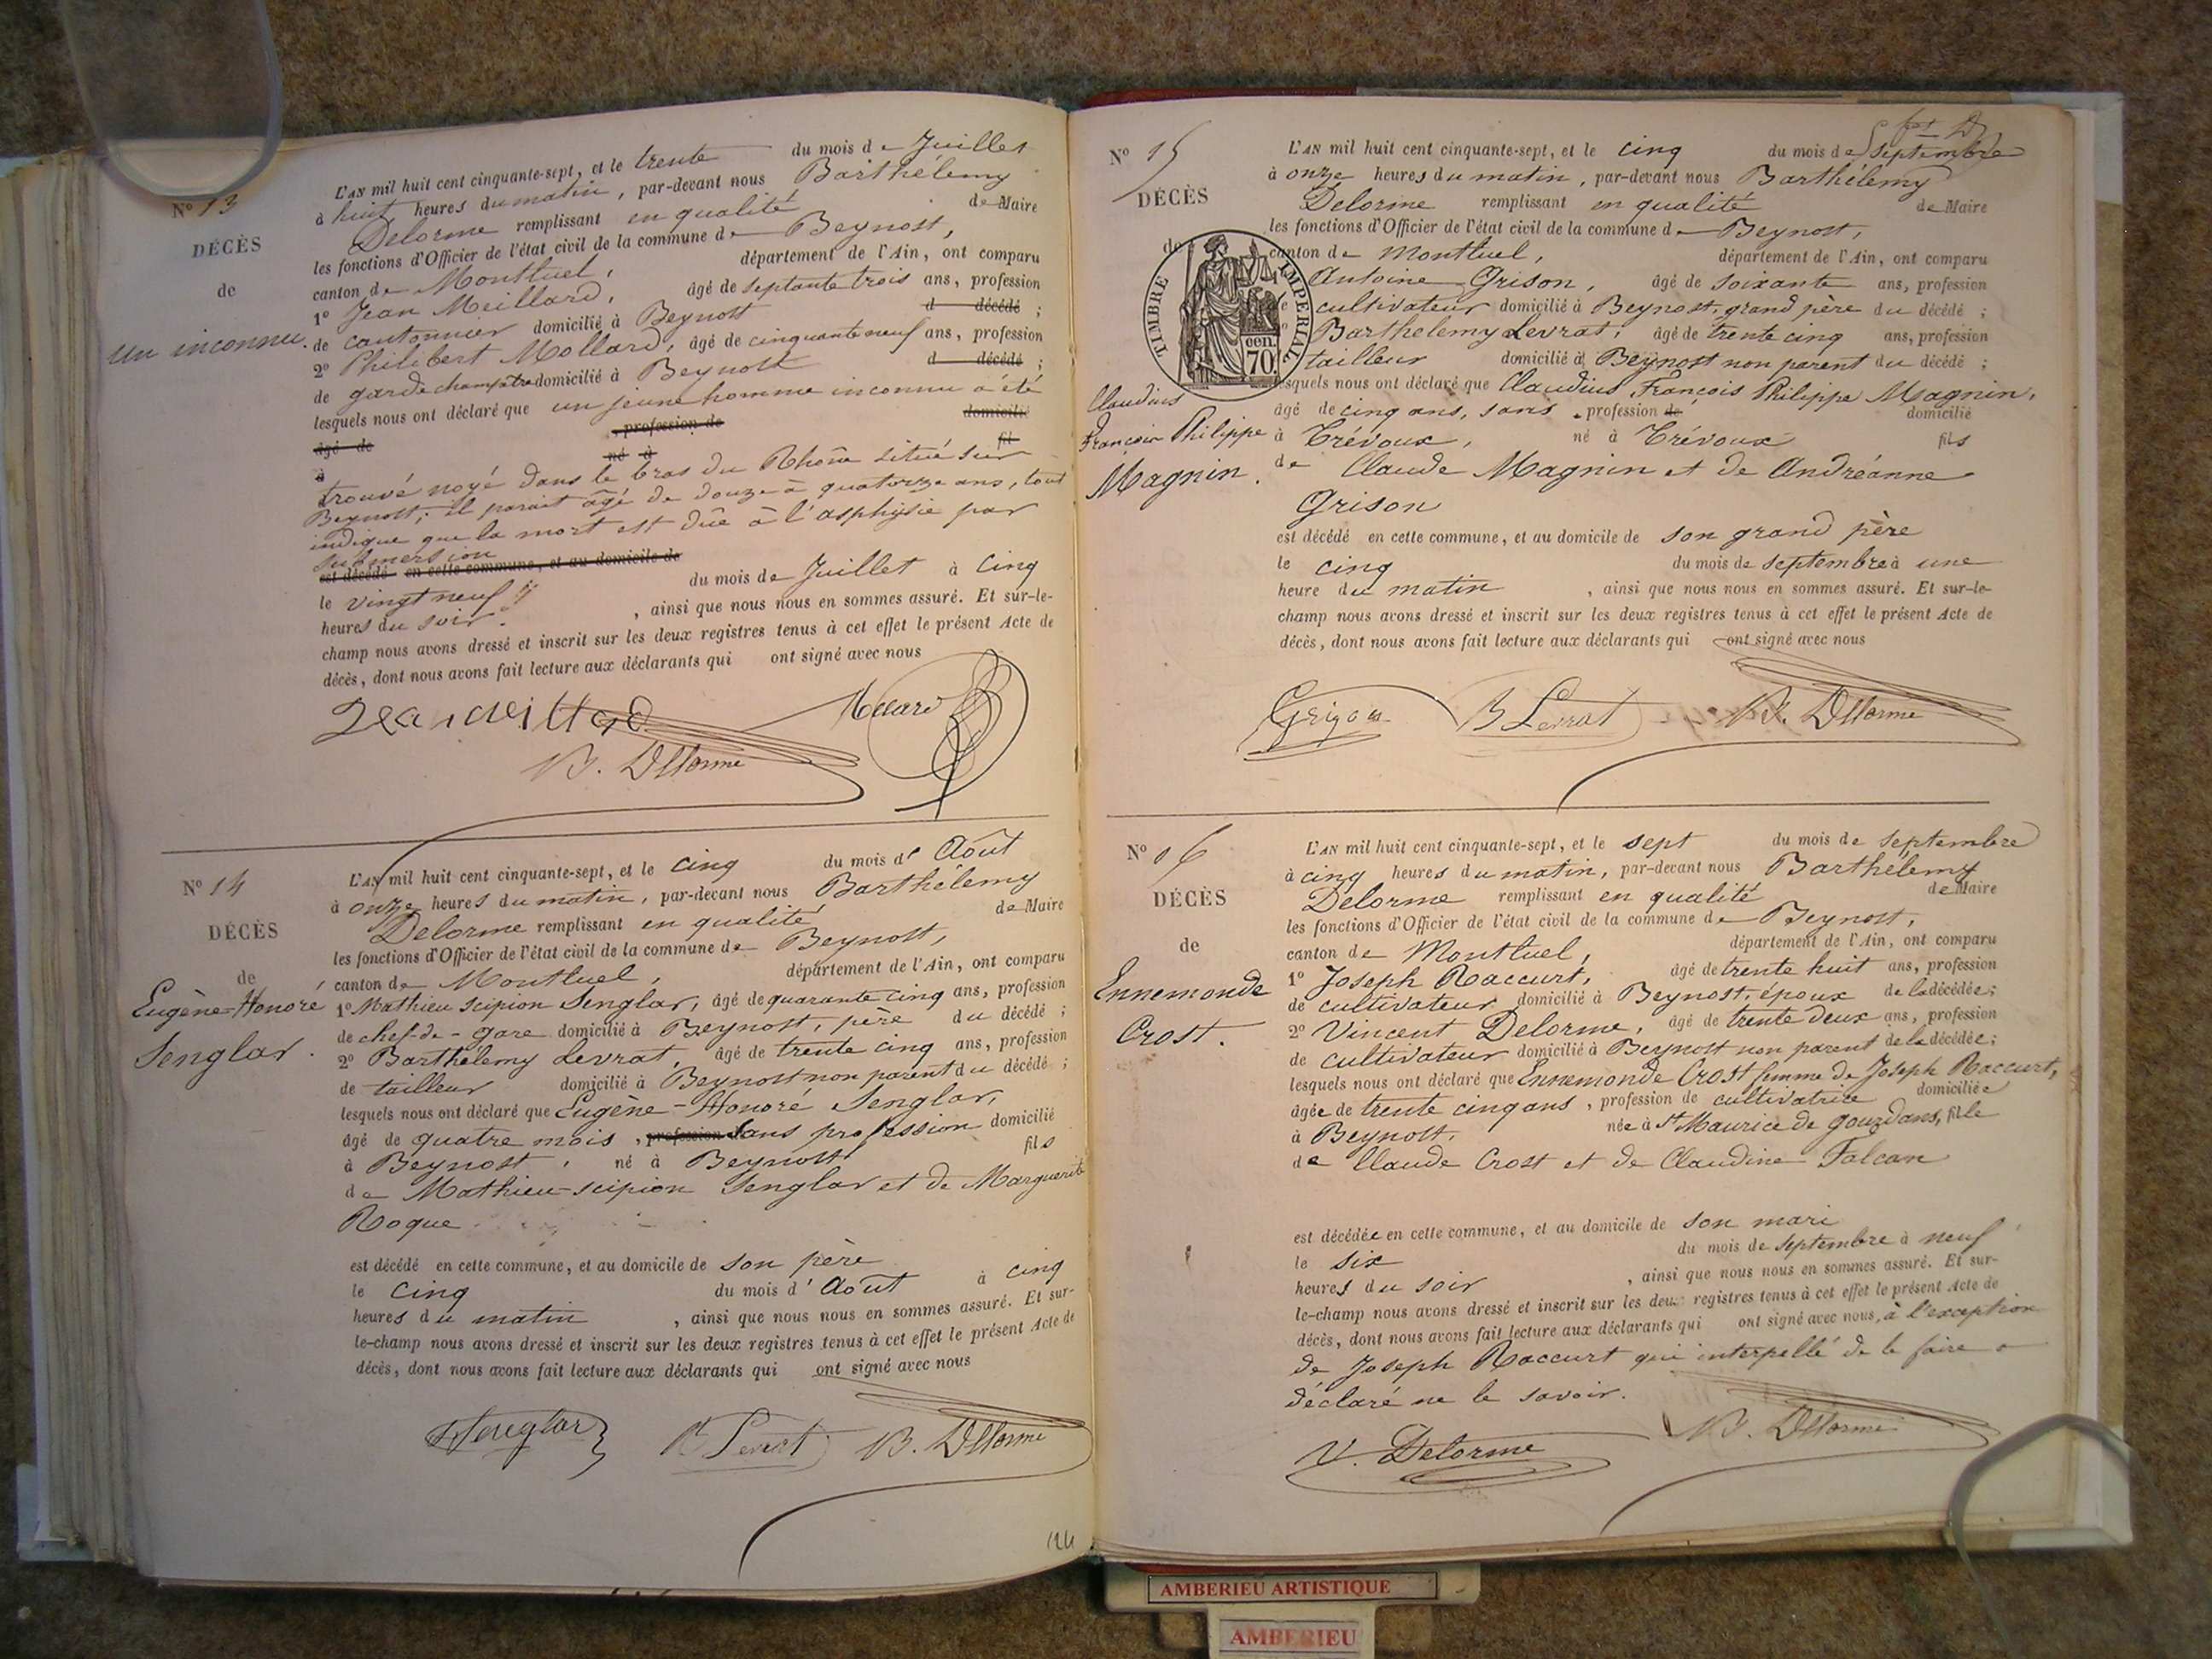 N° 13
DÉCÈS
de
un inconnu.
L'AN mil huit cent cinquante-sept, et le trente du mois de Juillet
à huit heures du matin, par-devant nous Barthélemy
Delorme remplissant en qualité de Maire
les fonctions d'Officier de l'état civil de la commune de Beynost,
canton de Montluel, département de l'Ain, ont comparu
1° Jean Meillard, âgé de septante trois ans, profession
de cantonnier domicilié à Beynost d décédé ;
2° Philibert Mollard, âgé de cinquante neuf ans, profession
de garde champêtre domicilié à Beynost d décédé ;
lesquels nous ont déclaré que un jeune homme inconnu a été
âgé de , profession de domicilié
à né à fil
trouvé noyé dans le bras du Rhône situé sur
Beynost; il parait âgé de douze à quatorze ans, tout
indique que la mort est dûe à l'asphyxie par
submersion
est décédé en cette commune, et au domicile de
le vingt neuf du mois de Juillet à cinq
heures du soir. , ainsi que nous nous en sommes assuré. Et sur-le-
champ nous avons dressé et inscrit sur les deux registres tenus à cet effet le présent Acte de
décès, dont nous avons fait lecture aux déclarants qui ont signé avec nous
B. Dllorme
N° 14
DÉCÈS
de
Eugène-Honoré
Senglar.
L'AN mil huit cent cinquante-sept, et le cinq du mois d' Août
à onze heures du matin, par-devant nous Barthélemy
Delorme remplissant en qualité de Maire
les fonctions d'Officier de l'état civil de la commune de Beynost,
canton de Montluel, département de l'Ain, ont comparu
1° Mathieu scipion Senglar, âgé de quarante cinq ans, profession
de chef-de-gare domicilié à Beynost, père du décédé ;
2° Barthélemy Levrat, âgé de trente cinq ans, profession
de tailleur domicilié à Beynost non parent du décédé ;
lesquels nous ont déclaré que Eugène-Honoré Senglar,
âgé de quatre mois, profession sans profession domicilié
à Beynost, né à Beynost fils
de Mathieu-scipion Senglar et de Marguerite
Roque
est décédé en cette commune, et au domicile de son père
le cinq du mois d' Août à cinq
heures du matin , ainsi que nous nous en sommes assuré. Et sur-
le-champ nous avons dressé et inscrit sur les deux registres tenus à cet effet le présent Acte de
décès, dont nous avons fait lecture aux déclarants qui ont signé avec nous
Senglar B Levrat B. Dllorme
124
N° 15
DÉCÈS
de
TIMBRE IMPERIAL
70 cen.
Claudius
François Philippe
Magnin.
L'AN mil huit cent cinquante-sept, et le cinq du mois de septembre
à onze heures du matin, par-devant nous Barthélemy
Delorme remplissant en qualité de Maire
les fonctions d'Officier de l'état civil de la commune de Beynost,
canton de Montluel, département de l'Ain, ont comparu
Antoine Grison, âgé de soixante ans, profession
de cultivateur domicilié à Beynost, grand père du décédé ;
Barthelemy Levrat, âgé de trente cinq ans, profession
tailleur domicilié à Beynost non parent du décédé ;
lesquels nous ont déclaré que Claudius François Philippe Magnin,
âgé de cinq ans, sans profession de domicilié
à Trévoux, né à Trévoux fils
de Claude Magnin et de Andréanne
Grison
est décédé en cette commune, et au domicile de son grand père
le cinq du mois de septembre à une
heure du matin , ainsi que nous nous en sommes assuré. Et sur-le-
champ nous avons dressé et inscrit sur les deux registres tenus à cet effet le présent Acte de
décès, dont nous avons fait lecture aux déclarants qui ont signé avec nous
Grison B Levrat B. Dllorme
N° 16
DÉCÈS
de
Ennemonde
Crost.
L'AN mil huit cent cinquante-sept, et le sept du mois de septembre
à cinq heures du matin, par-devant nous Barthélemy
Delorme remplissant en qualité de Maire
les fonctions d'Officier de l'état civil de la commune de Beynost,
canton de Montluel, département de l'Ain, ont comparu
1° Joseph Raccurt, âgé de trente huit ans, profession
de cultivateur domicilié à Beynost, époux de la décédée;
2° Vincent Delorme, âgé de trente deux ans, profession
de cultivateur domicilié à Beynost non parent de la décédée;
lesquels nous ont déclaré que Ennemonde Crost femme de Joseph Raccurt,
âgée de trente cinq ans, profession de cultivatrice domiciliée
à Beynost, née à St Maurice de Gourdans, fille
de Claude Crost et de Claudine Falcan
est décédée en cette commune, et au domicile de son mari
le six du mois de septembre à neuf
heures du soir , ainsi que nous nous en sommes assuré. Et sur-
le-champ nous avons dressé et inscrit sur les deux registres tenus à cet effet le présent Acte de
décès, dont nous avons fait lecture aux déclarants qui ont signé avec nous, à l'exception
de Joseph Raccurt qui interpellé de le faire a
déclaré ne le savoir.
V. Delorme B. Dllorme
AMBERIEU ARTISTIQUE
AMBERIEU